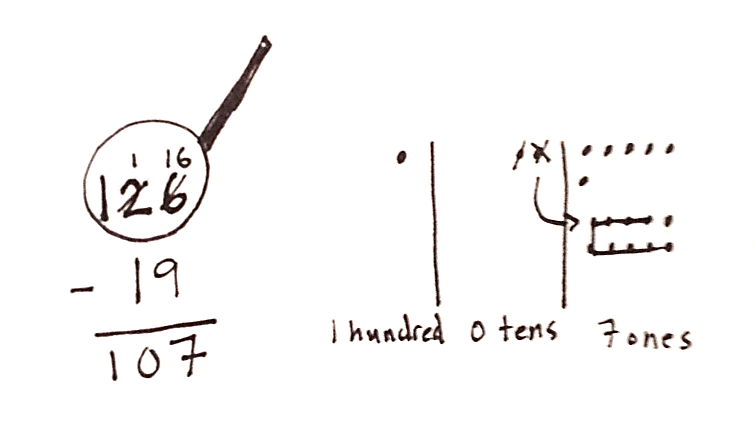 1 16
126
- 19
107
1 hundred 0 tens 7 ones